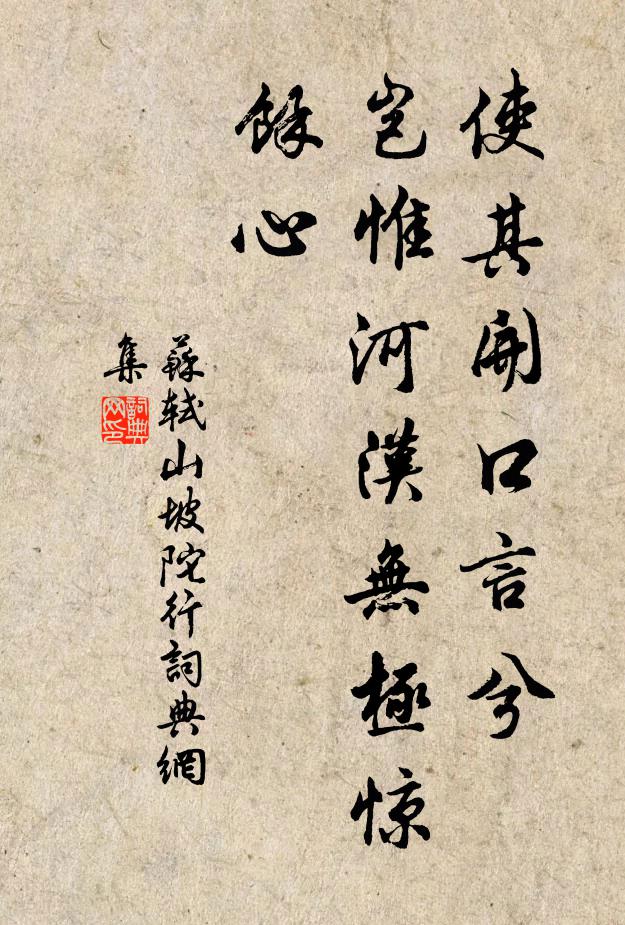 使其開口言兮
豈惟河漢無極惊
餘心
蘇軾山坡陀行詞典網
集
詞典
网印